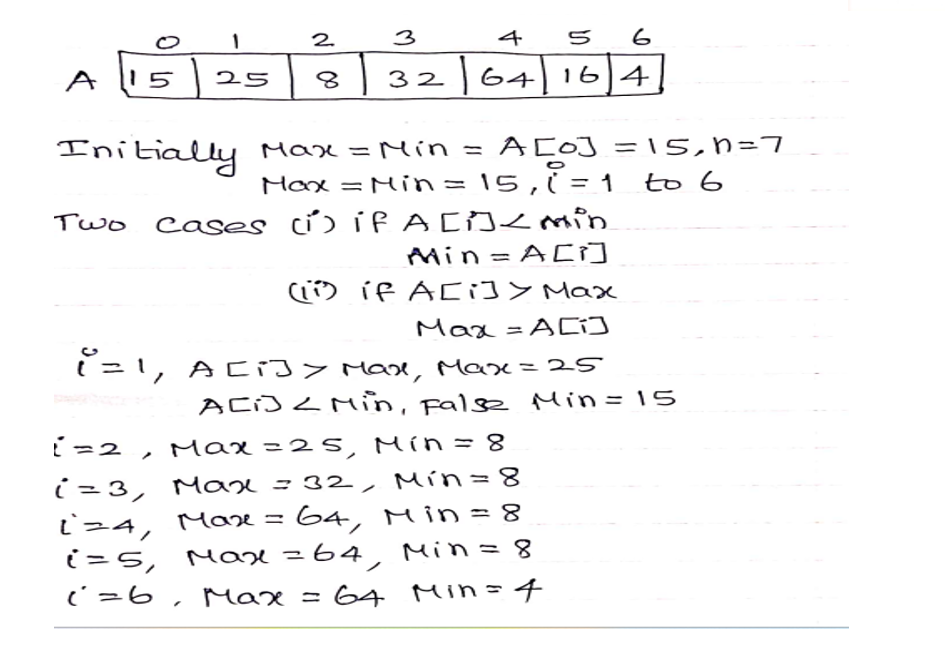 0 1 2 3 4 5 6
A 15 25 8 32 64 16 4
Initially Max = Min = A[0] = 15, n=7
Max = Min = 15, i = 1 to 6
Two cases (i) if A[i] < Min
Min = A[i]
(ii) if A[i] > Max
Max = A[i]
i = 1, A[i] > Max, Max = 25
A[i] < Min, False Min = 15
i = 2, Max = 25, Min = 8
i = 3, Max = 32, Min = 8
i = 4, Max = 64, Min = 8
i = 5, Max = 64, Min = 8
i = 6, Max = 64 Min = 4